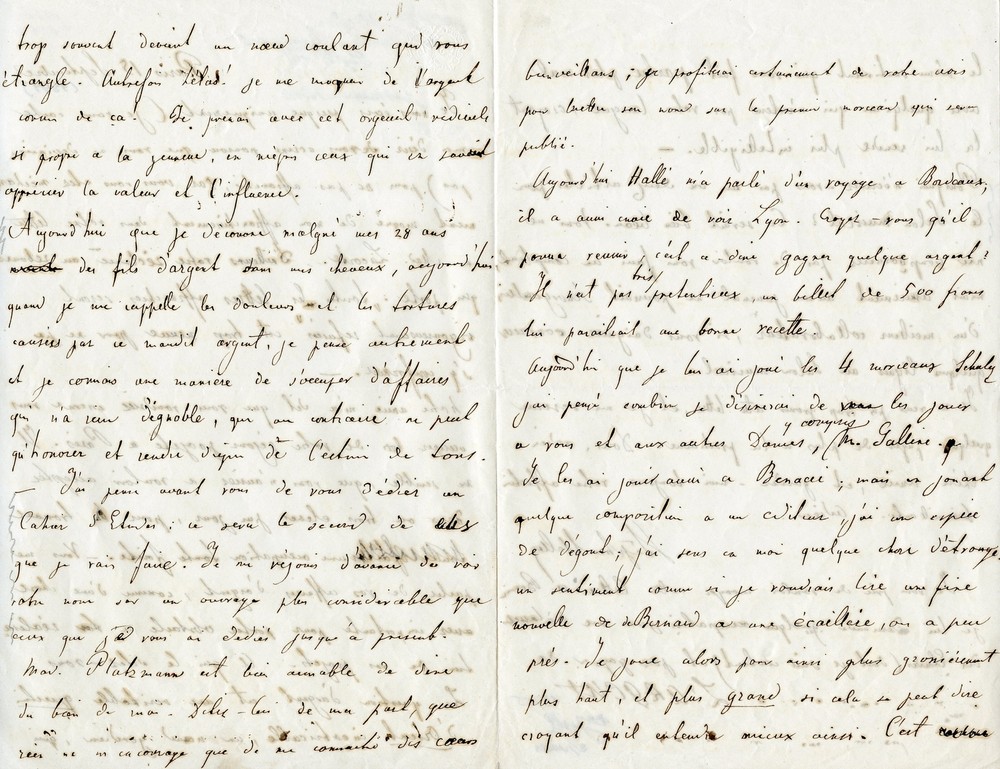 trop souvent devient un nœud coulant qui vous
étrangle. Autrefois hélas! je me moquais de l'argent
comme de ça. Je prenais avec cet orgeuil rédicule
si propre a la jeunesse, en mépris ceux qui en savent
apprécier la valeur et l'influence.
Aujourd'hui que je découvre malgré mes 28 ans
des fils d'argent dans mes cheveux, aujourd'hui
quand je me rappelle les douleurs et les tortures
causées par ce maudit argent, je pense autrement
et je connais une manière de s'occuper d'affaires
qui n'a rien d'ignoble, qui au contraire ne peut
qu'honorer et rendre digne de l'estime de tous.
J'ai pensé avant vous de vous dédier un
Cahier d'Etudes; ce sera le second de
que je vais faire. Je me réjouis d'avance de voir
votre nom sur un ouvrage plus considerable que
ceux que je vous ai dediés jusqu'à present.
Mad. Platzmann est bien aimable de dire
du bien de moi. Dites-lui de ma part que
rien ne m'encourage que de me des cœurs
bienveillans; je profiterai certainement de votre avis
pour mettre son nom sur le premier morceau qui sera
publié.
Aujourd'hui Hallé m'a parlé d'un voyage a Bordeaux,
il a aussi envie de voir Lyon. Croyez-vous qu'il
pourra reussir, c'est-a-dire gagner quelque argent?
Il n'est pas très pretentieux, un billet de 500 francs
lui paraîtrait une bonne recette.
Aujourd'hui que je lui ai joué les 4 morceaux
j'ai pensé combien je désirerais de les jouer
a vous et aux autres Dames, y compris M. Galline.
Je les ai joués aussi a Benacci; mais en jouant
quelque composition a un editeur, j'ai un espèce
de dégout; j'ai sens en moi quelque chose d'étrange
un sentiment comme si je voudrais lire une fine
nouvelle de de Bernard a une écaillère, ou a peu
près. Je joue alors pour ainsi plus grossièrement
plus haut, et plus grand si cela se peut dire
croyant qu'il entendra mieux ainsi. C'est